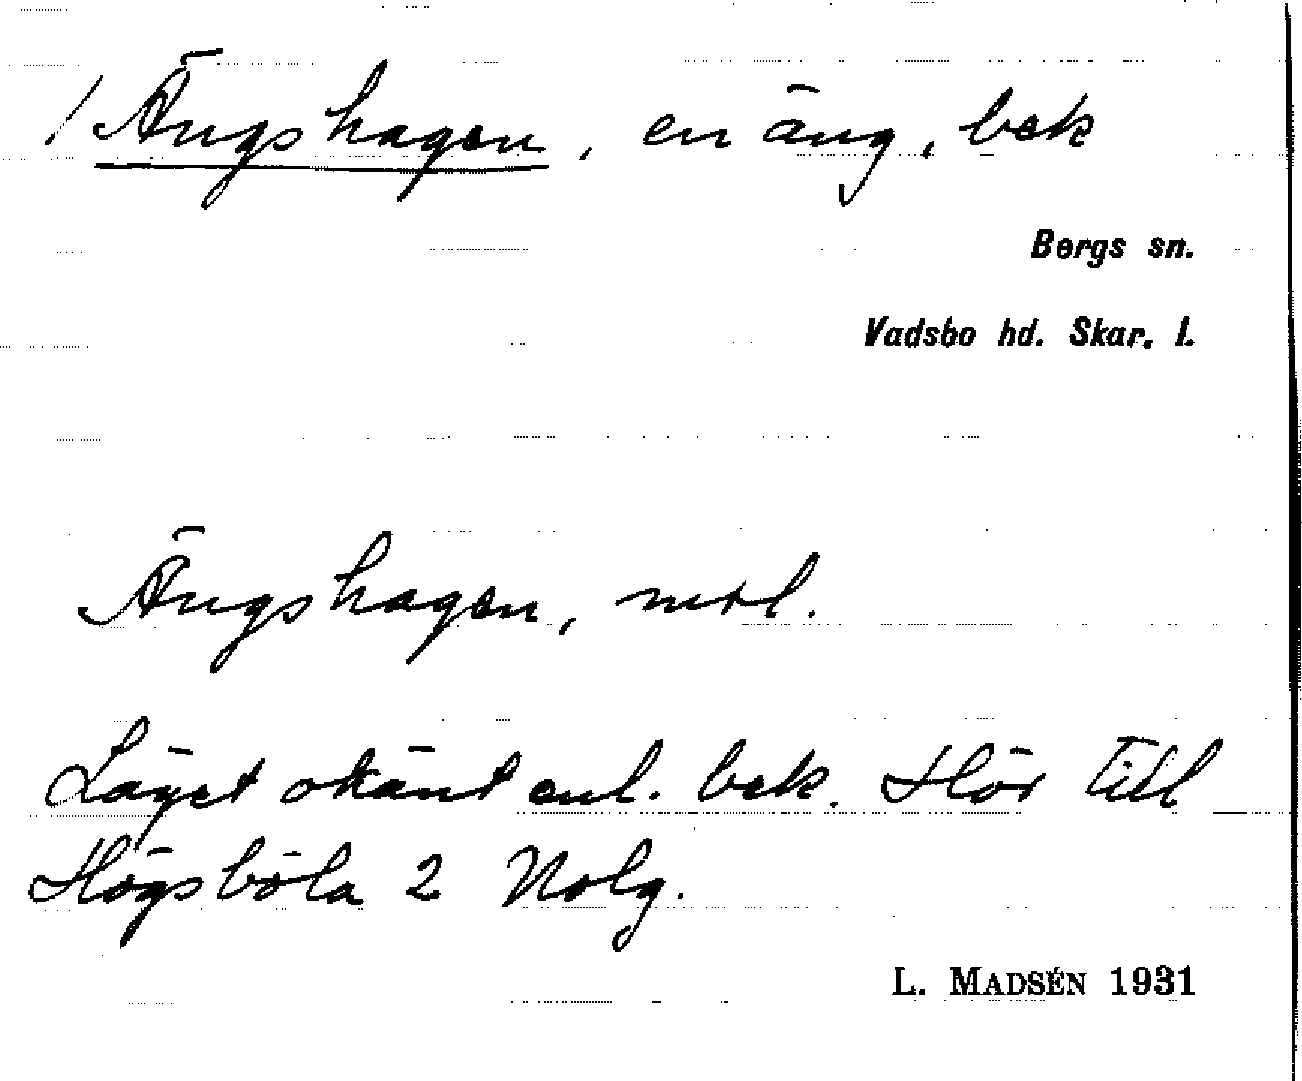 / Ängshagen, en äng, bek
Bergs sn.
Vadsbo hd. Skar. l.
Ängshagen, mtl.
Läget okänt enl. bek. Hör till
Högsböla 2 Nolg.
L. MADSÉN 1931